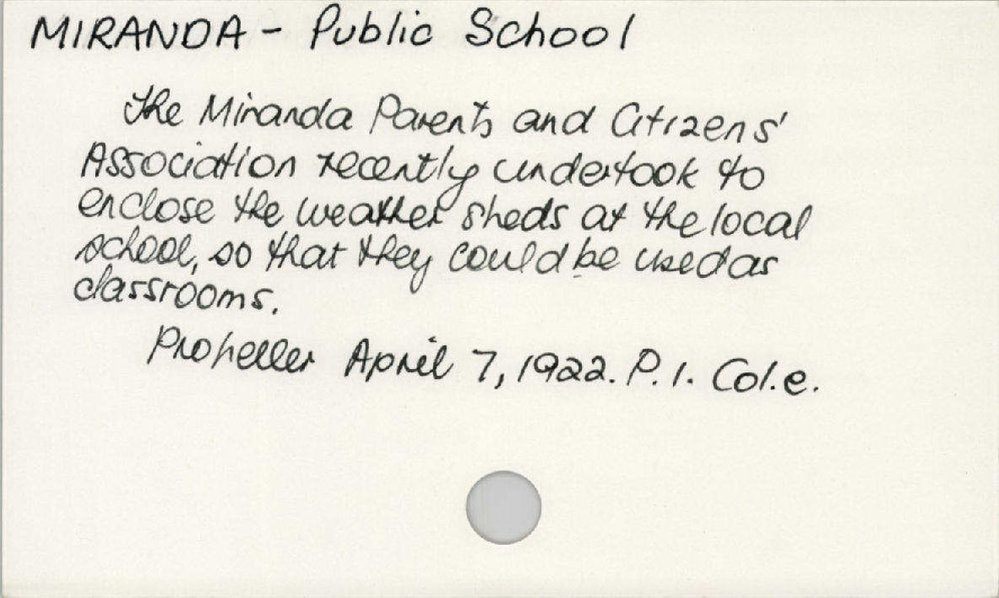 MIRANDA - Public School
The Miranda Parents and Citizens'
Association recently undertook to
enclose the weather sheds at the local
school, so that they could be used as
classrooms.
Propeller April 7, 1922. P. 1. Col. e.